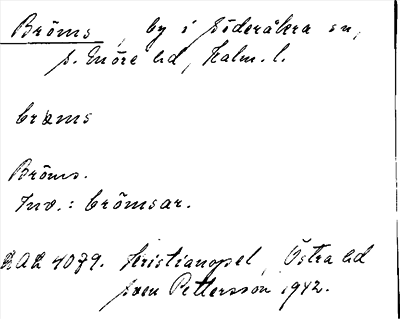 Bröms, by i Söderåkra sn,
s. Möre hd, Kalm. l.
brams
Bröms.
Inv.: brömsar.
4079. Kristianopel, Östra hd
Sven Pettersson 1942.